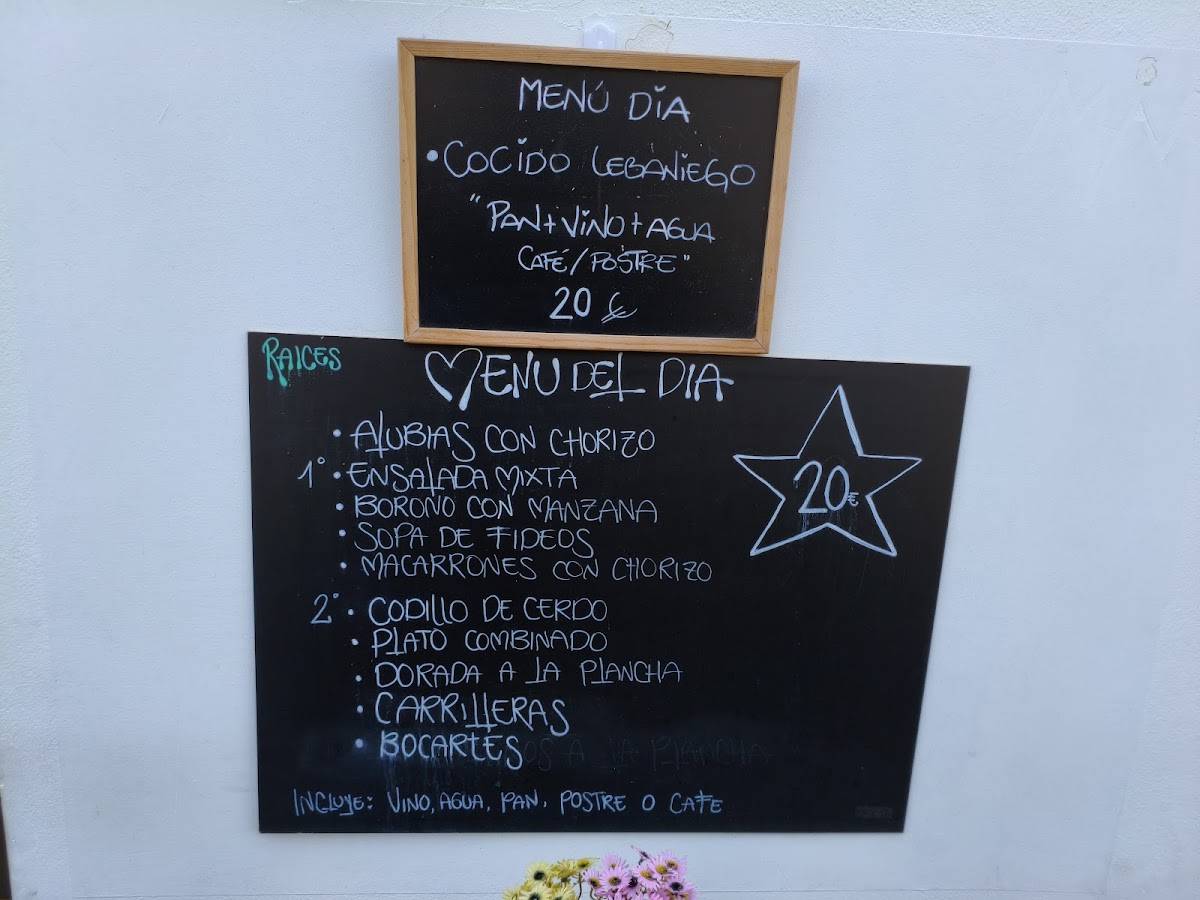 MENÚ DIA
• COCIDO LEBANIEGO
"PAN+VINO+AGUA
CAFÉ/POSTRE"
20 €
RAICES
MENU DEL DIA
• ALUBIAS CON CHORIZO
1° • ENSALADA MIXTA
• BOROÑO CON MANZANA
• SOPA DE FIDEOS
• MACARRONES CON CHORIZO
20€
2° • CODILLO DE CERDO
• PLATO COMBINADO
• DORADA A LA PLANCHA
• CARRILLERAS
• BOCARTES
INCLUYE: VINO, AGUA, PAN, POSTRE O CAFE